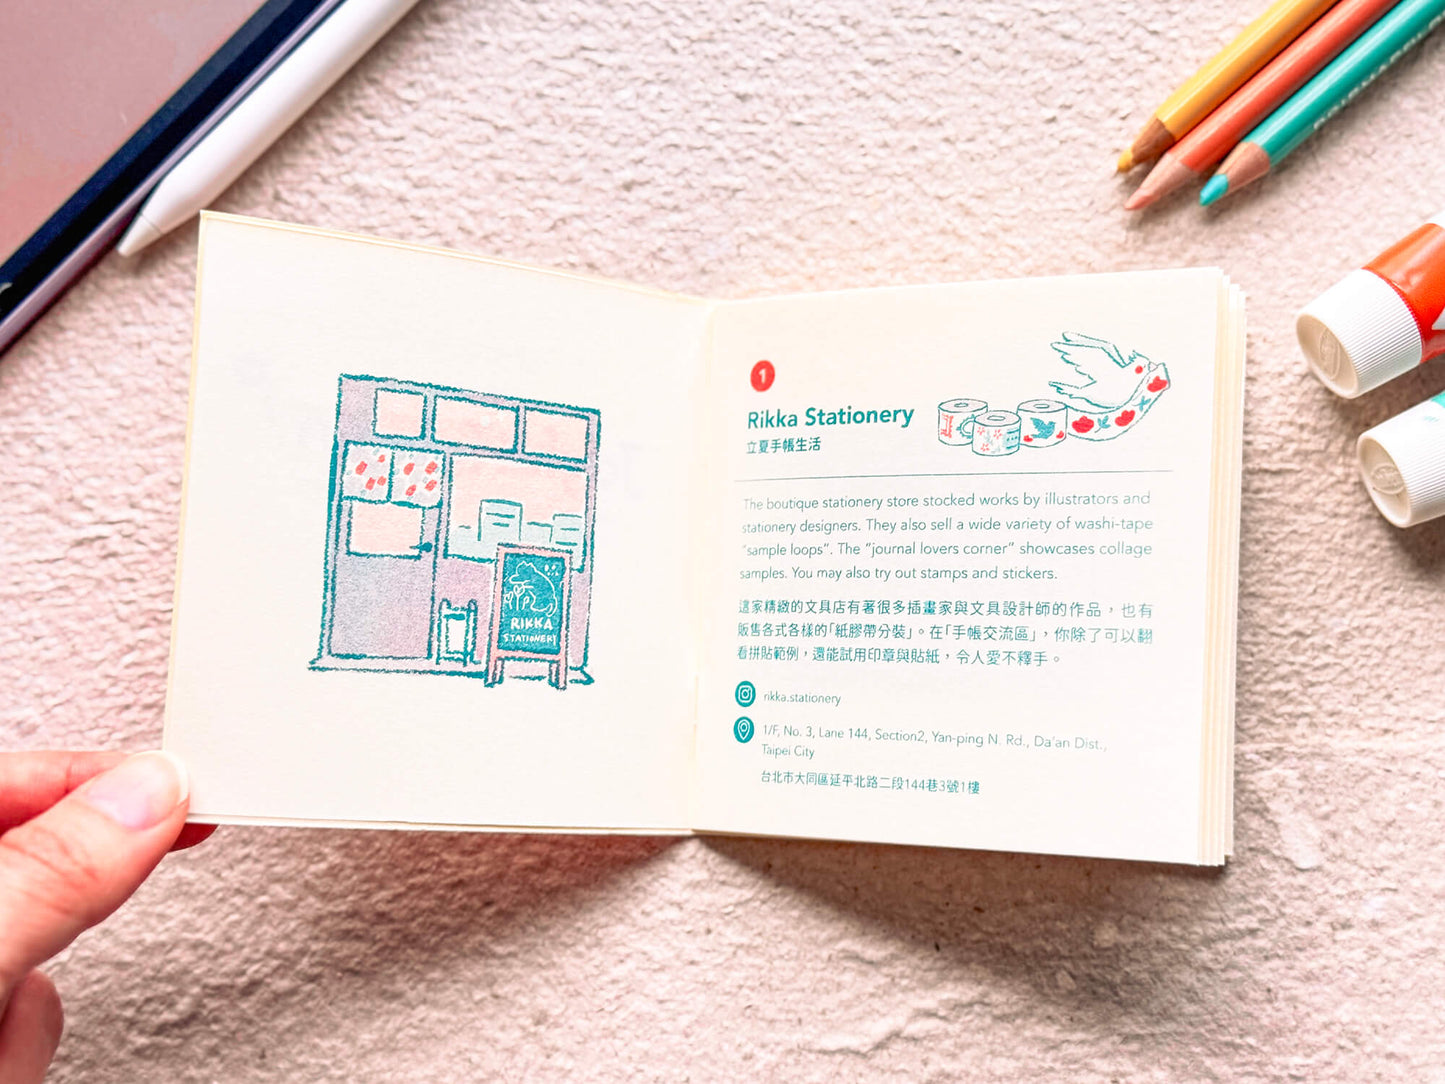 RIKKA
STATIONERY
1
Rikka Stationery
立夏手帳生活
The boutique stationery store stocked works by illustrators and
stationery designers. They also sell a wide variety of washi-tape
"sample loops". The "journal lovers corner" showcases collage
samples. You may also try out stamps and stickers.
這家精緻的文具店有著很多插畫家與文具設計師的作品，也有
販售各式各樣的「紙膠帶分裝」。在「手帳交流區」，你除了可以翻
看拼貼範例，還能試用印章與貼紙，令人愛不釋手。
rikka.stationery
1/F, No. 3, Lane 144, Section2, Yan-ping N. Rd., Da'an Dist.,
Taipei City
台北市大同區延平北路二段144巷3號1樓